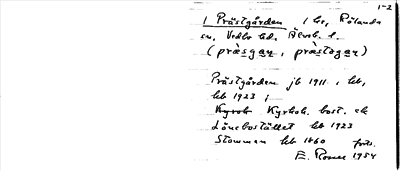 1-2
1 Prästgården 1 by, Rölanda
sn, Vedbo hd. Älvsb. l.
(præ̀sgan, præ̀stagan)
Prästgården jb 1911, kb,
kb 1923;
Kyrkoh. bost. ek
Lönebostället kb 1923
Stommen kb 1860 forts.
E. Rosell 1954